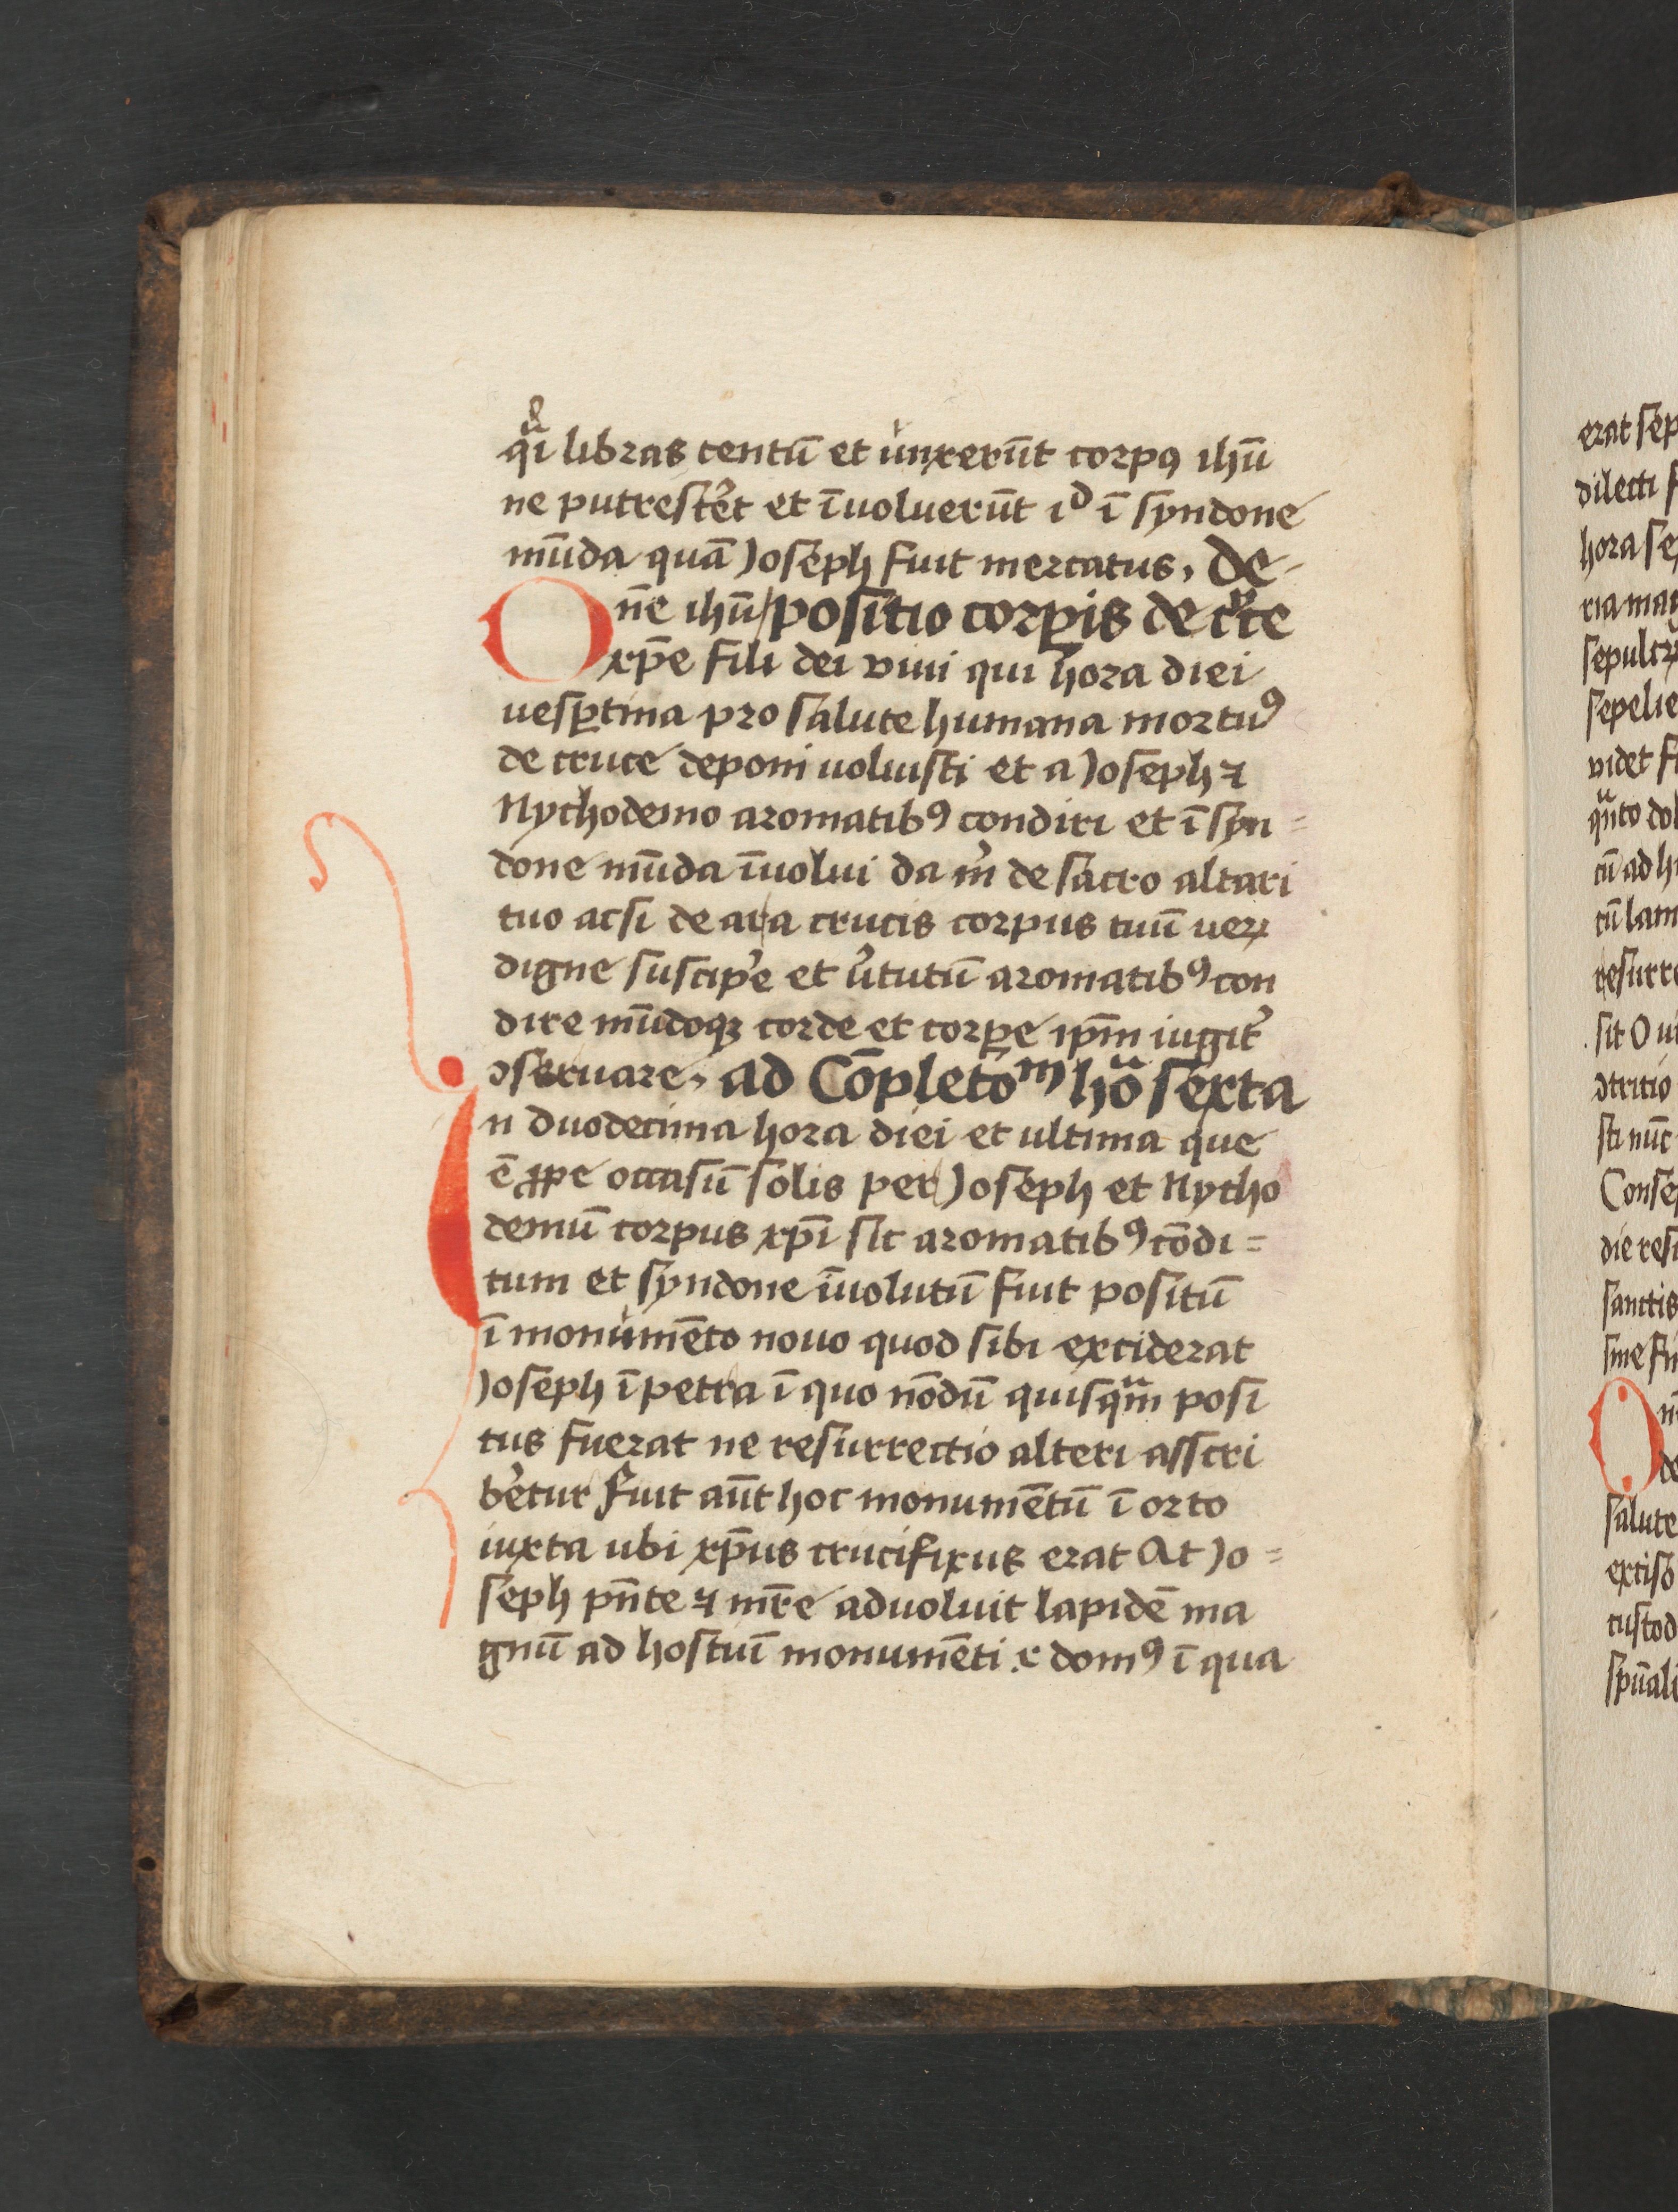 qͣi libras centū et unxerūt corpꝯ ihū
ne putrescēt et īuoluerūt iᵈ ī syndone
mūda quā Joseph fuit mercatus, de
One ihū positio corꝑis de cͮce
xp̄e fili dei viui qui hora diei
uesꝑtina pro salute humana mortuꝰ
de cruce deponi uoluisti et a Joseph ⁊
Nychodemo aromatibꝰ condiri et ī syn=
done mūda īuolui da m̄ de sacro altari
tuo acsi de ara crucis corpus tuū veꝝ
digne suscip̄e et v̄tutū aromatibꝰ con
dire mūdoqꝫ corde et corꝑe ip̄m iugit̄
ꝯseruare, ad Cōpletoᵐ hͣo sexta
In duodecima hora diei et ultima que
ē ꝓpe occasū solis per Joseph et Nycho
demū corpus xp̄i sic aromatibꝰ cōdi=
tum et syndone īuolutū fuit positū
ī monumēto nouo quod sibi exciderat
Joseph ī petra ī quo nōdū quisqͣm posi
tus fuerat ne resurrectio alteri asscri
b̄etur fuit aūt hoc monumētū ī orto
iuxta ubi xp̄us crucifixus erat At Jo=
seph p̄nte ⁊ mr̄e aduoluit lapidē ma
gnū ad hostiū monumēti ⁊ domꝰ ī qua
erat sep
dilecti f
hora se
ria mag
sepultꝝ
sepelie
videt fi
qͣnto dol
cū ad h
cū lam
resurre
sit O ui
ꝯtritio
sti nūc
Conse
die resi
sanctis
sine fi
On
de
salute
exciso
custod
sp̄uali